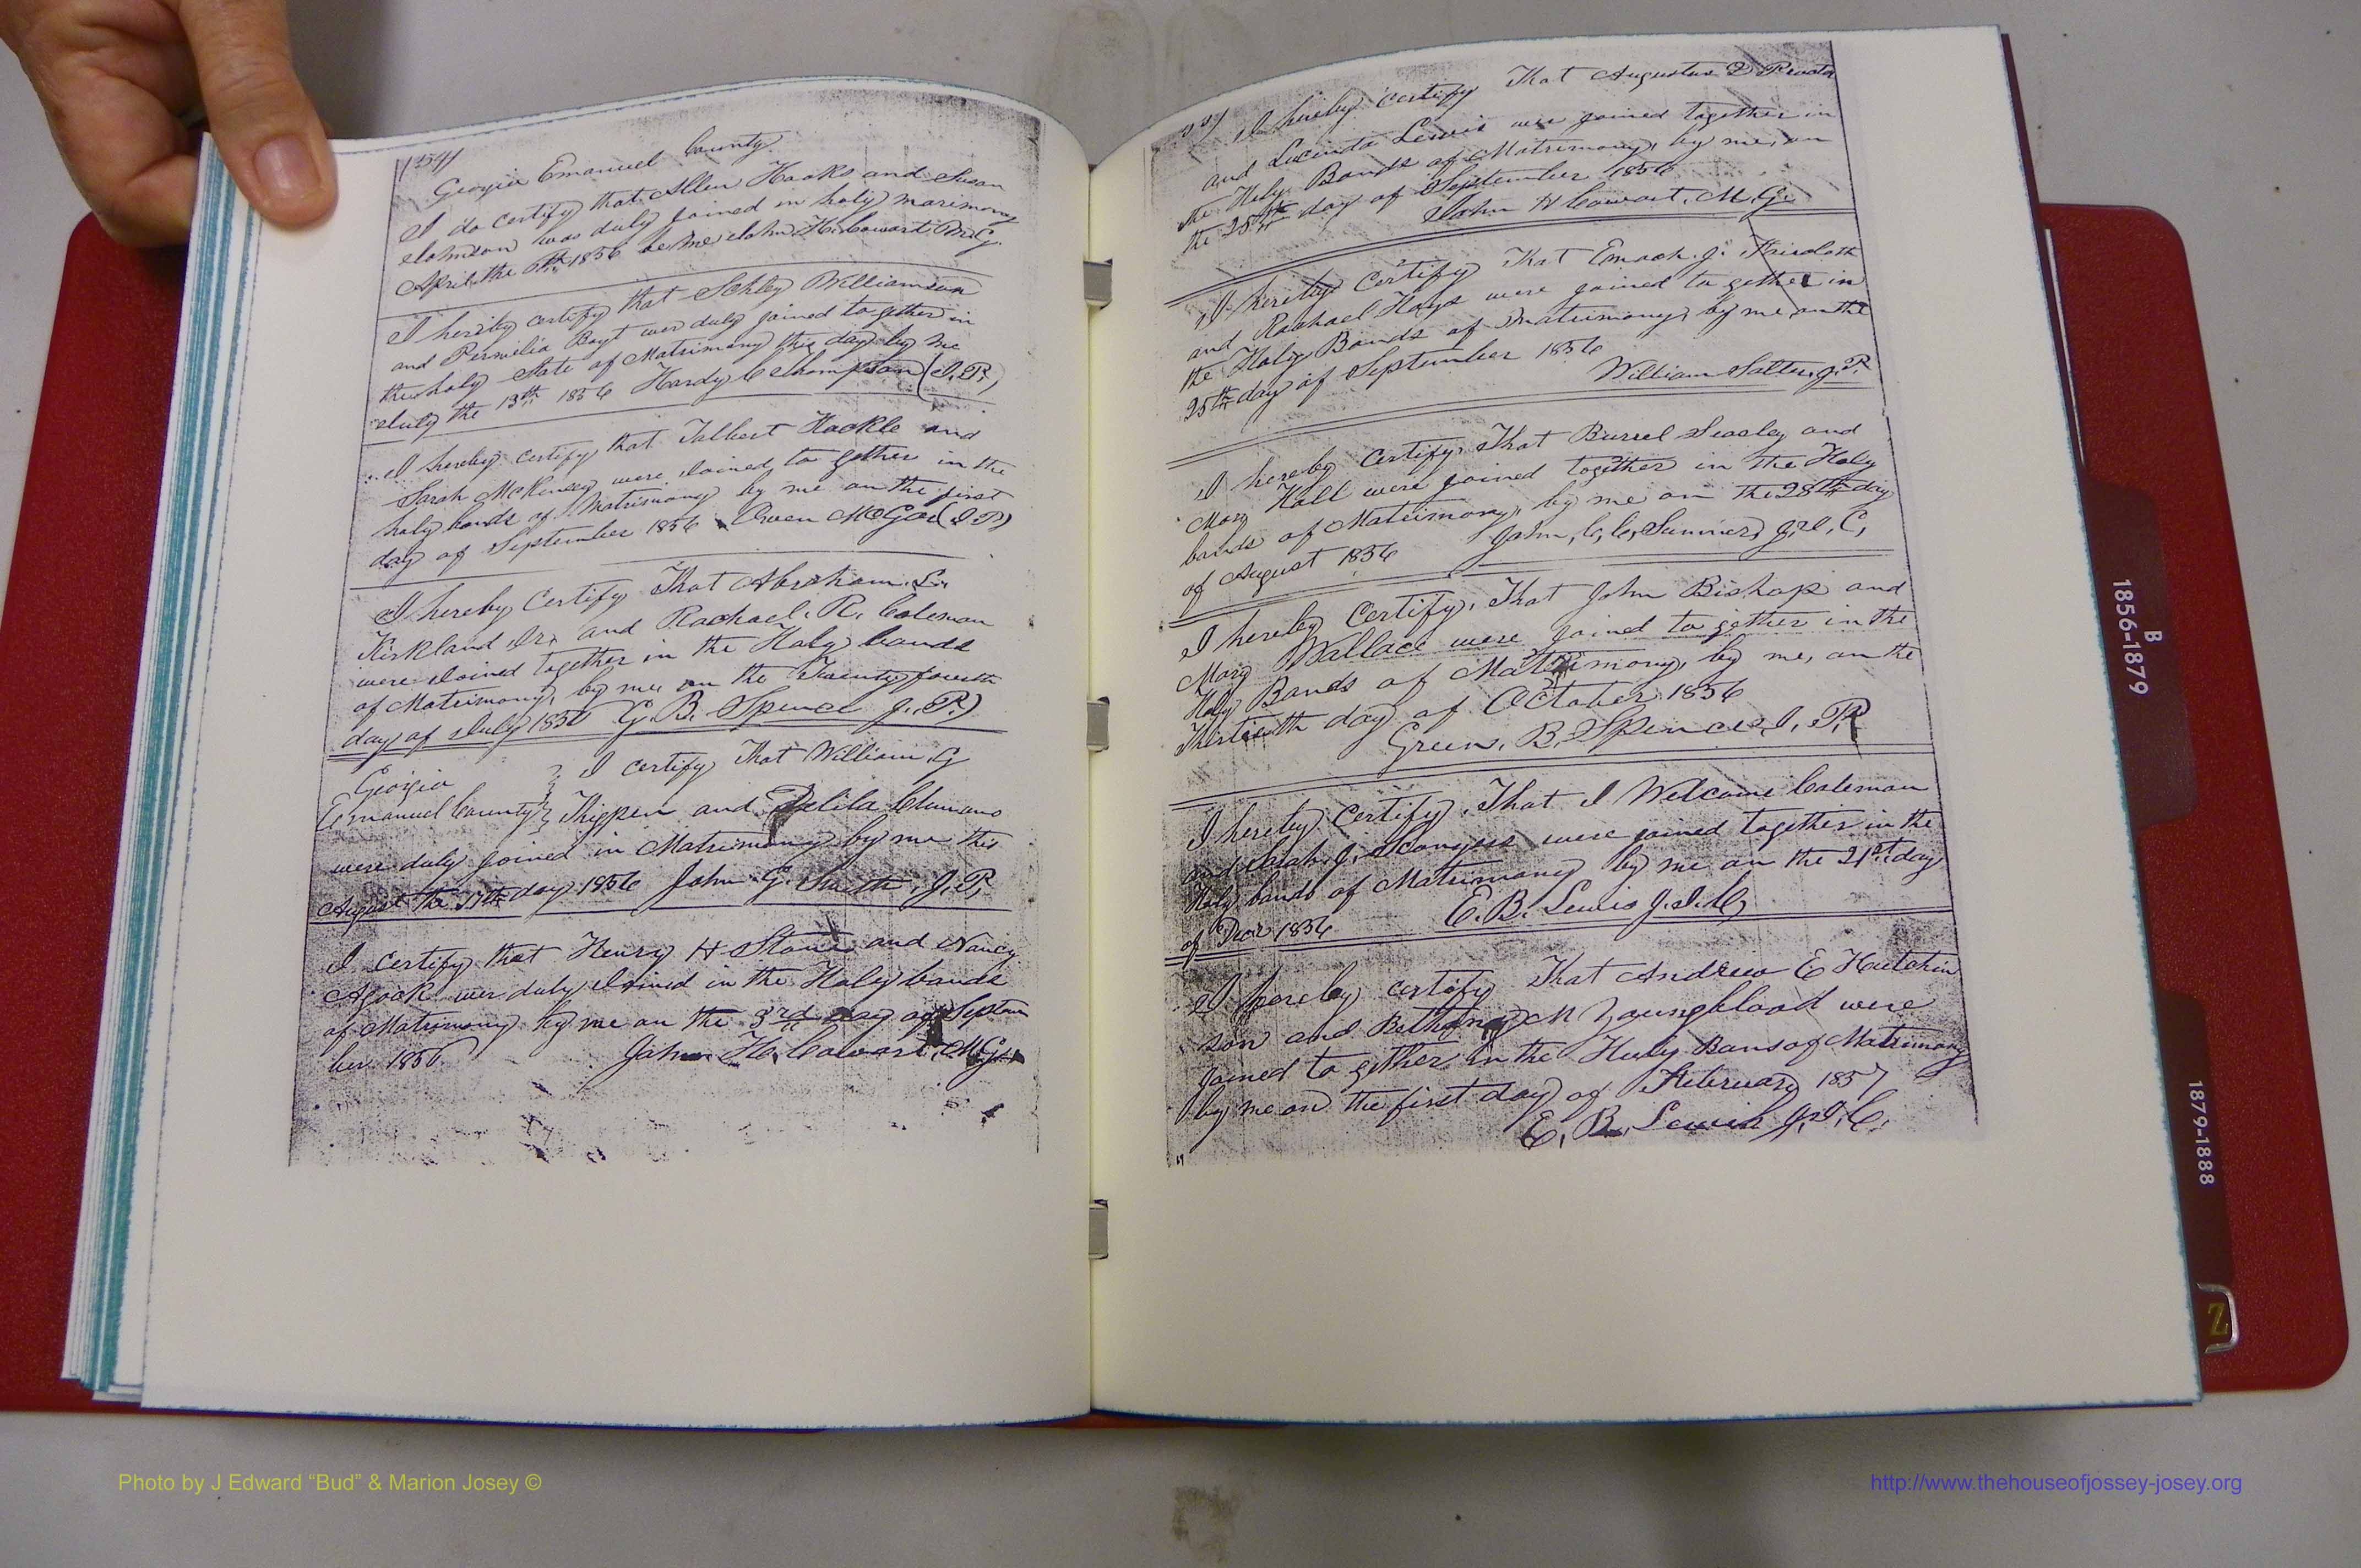 Georgia Emanuel County
I do certify that Allen Hooks and Susan
Johnson was duly joined in holy marimony
April the 6th 1856 be me John H. Cowart M.G.
I hereby certify that Schley Williamson
and Permelia Boyt wer duly joined to gether in
the holy State of Matrimony this day by me
July the 13th 1856 Hardy C Thompson (J.P.)
I hereby certify that Talbert Hackle and
Sarah McKinney were Joined to gether in the
holy bands of Matrimony by me on the first
day of September 1856 Owen McGar (J P)
I hereby Certify That Abraham L.
Kirkland Jr. and Rachael. R. Coleman
were Joined together in the Holy bands
of Matrimony, by me on the Twenty fourth
day of July 1856 G. B. Spence J. P.)
Georgia I certify That William G
Emanuel County Thigpen and Delila Clemans
were duly joined in Matrimony by me this
August the 17th day 1856 John G. Smith J. P.
I certify that Henry H Stone and Nancy
were duly Joined in the Holy bands
of Matrimony by me on the 3rd day of Septem
ber 1856 John H. Cowart, M.G.
I hereby Certify That Augustus D
and Lucinda Lewis were joined together in
the Holy Bands of Matrimony, by me, on
the 25th day of September 1856
John H Cowart. M. G.
I hereby Certify That Emoch. J.
and Rachael Hays were joined to gether in
the Holy Bands of Matrimony, by me, on the
25th day of September 1856
William Salter J. P.
I hereby Certify, That Burrel Seasley and
Mary Hall were joined together in The Holy
bands of Matrimony, by me on the 28th day
of August 1856 John, C, C, Sumner, J. I. C,
I hereby Certify, That John Bishop and
Mary Wallace were joined to gether in the
Holy Bands of Matrimony, by me, on the
Thirtieth day of October 1856
Green. B. Spence J. P.
I hereby Certify, That I Welcome Coleman
and were joined together in the
Holy bands of Matrimony by me on the 21st day
of 1856 E. B. Lewis J. I. C,
I hereby certify That Andrew E Hutchin
son and Bethany M Youngblood were
joined to gether in the Holy Bans of Matrimony
by me on the first day of February 1857
E. B. Lewis J. I. C.
B
1856-1879
1879-1888
Z
Photo by J Edward “Bud” & Marion Josey ©
http://www.thehouseofjossey-josey.org